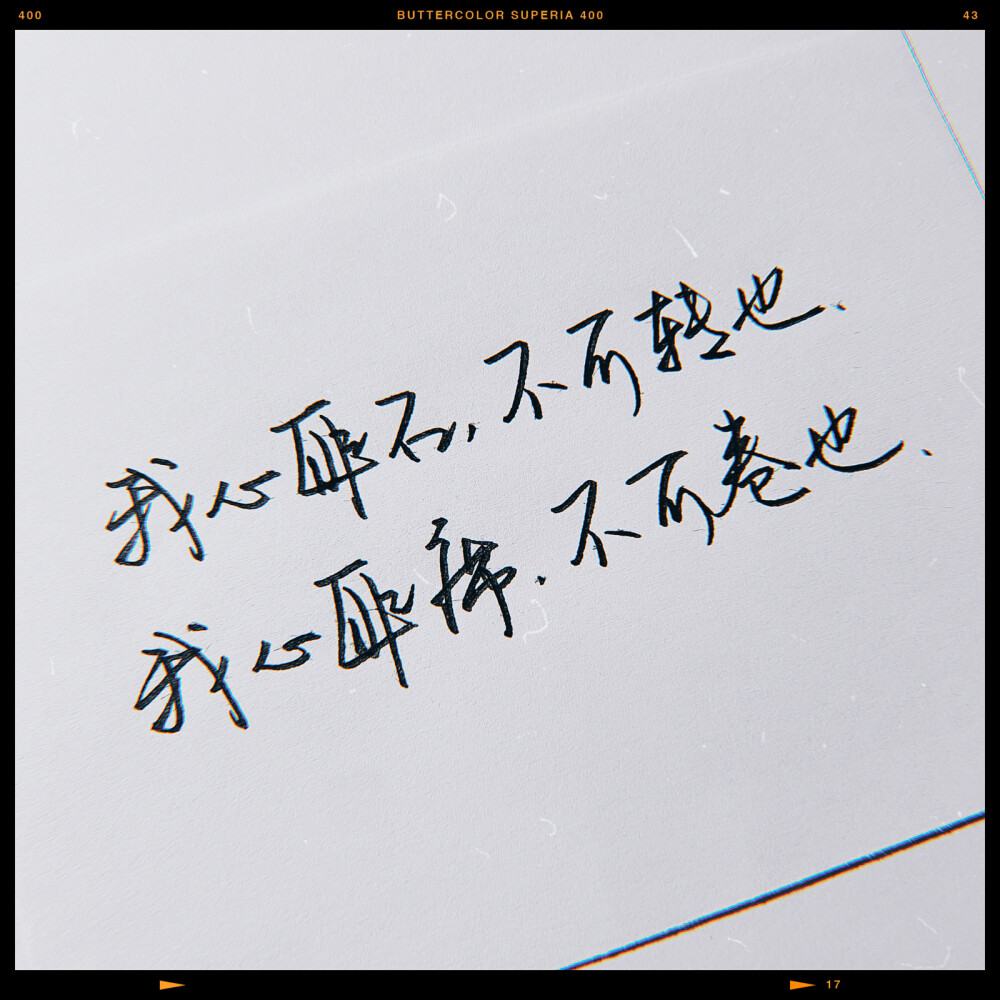 400 BUTTERCOLOR SUPERIA 400 43
我心匪石,不可转也.
我心匪席.不可卷也.
17